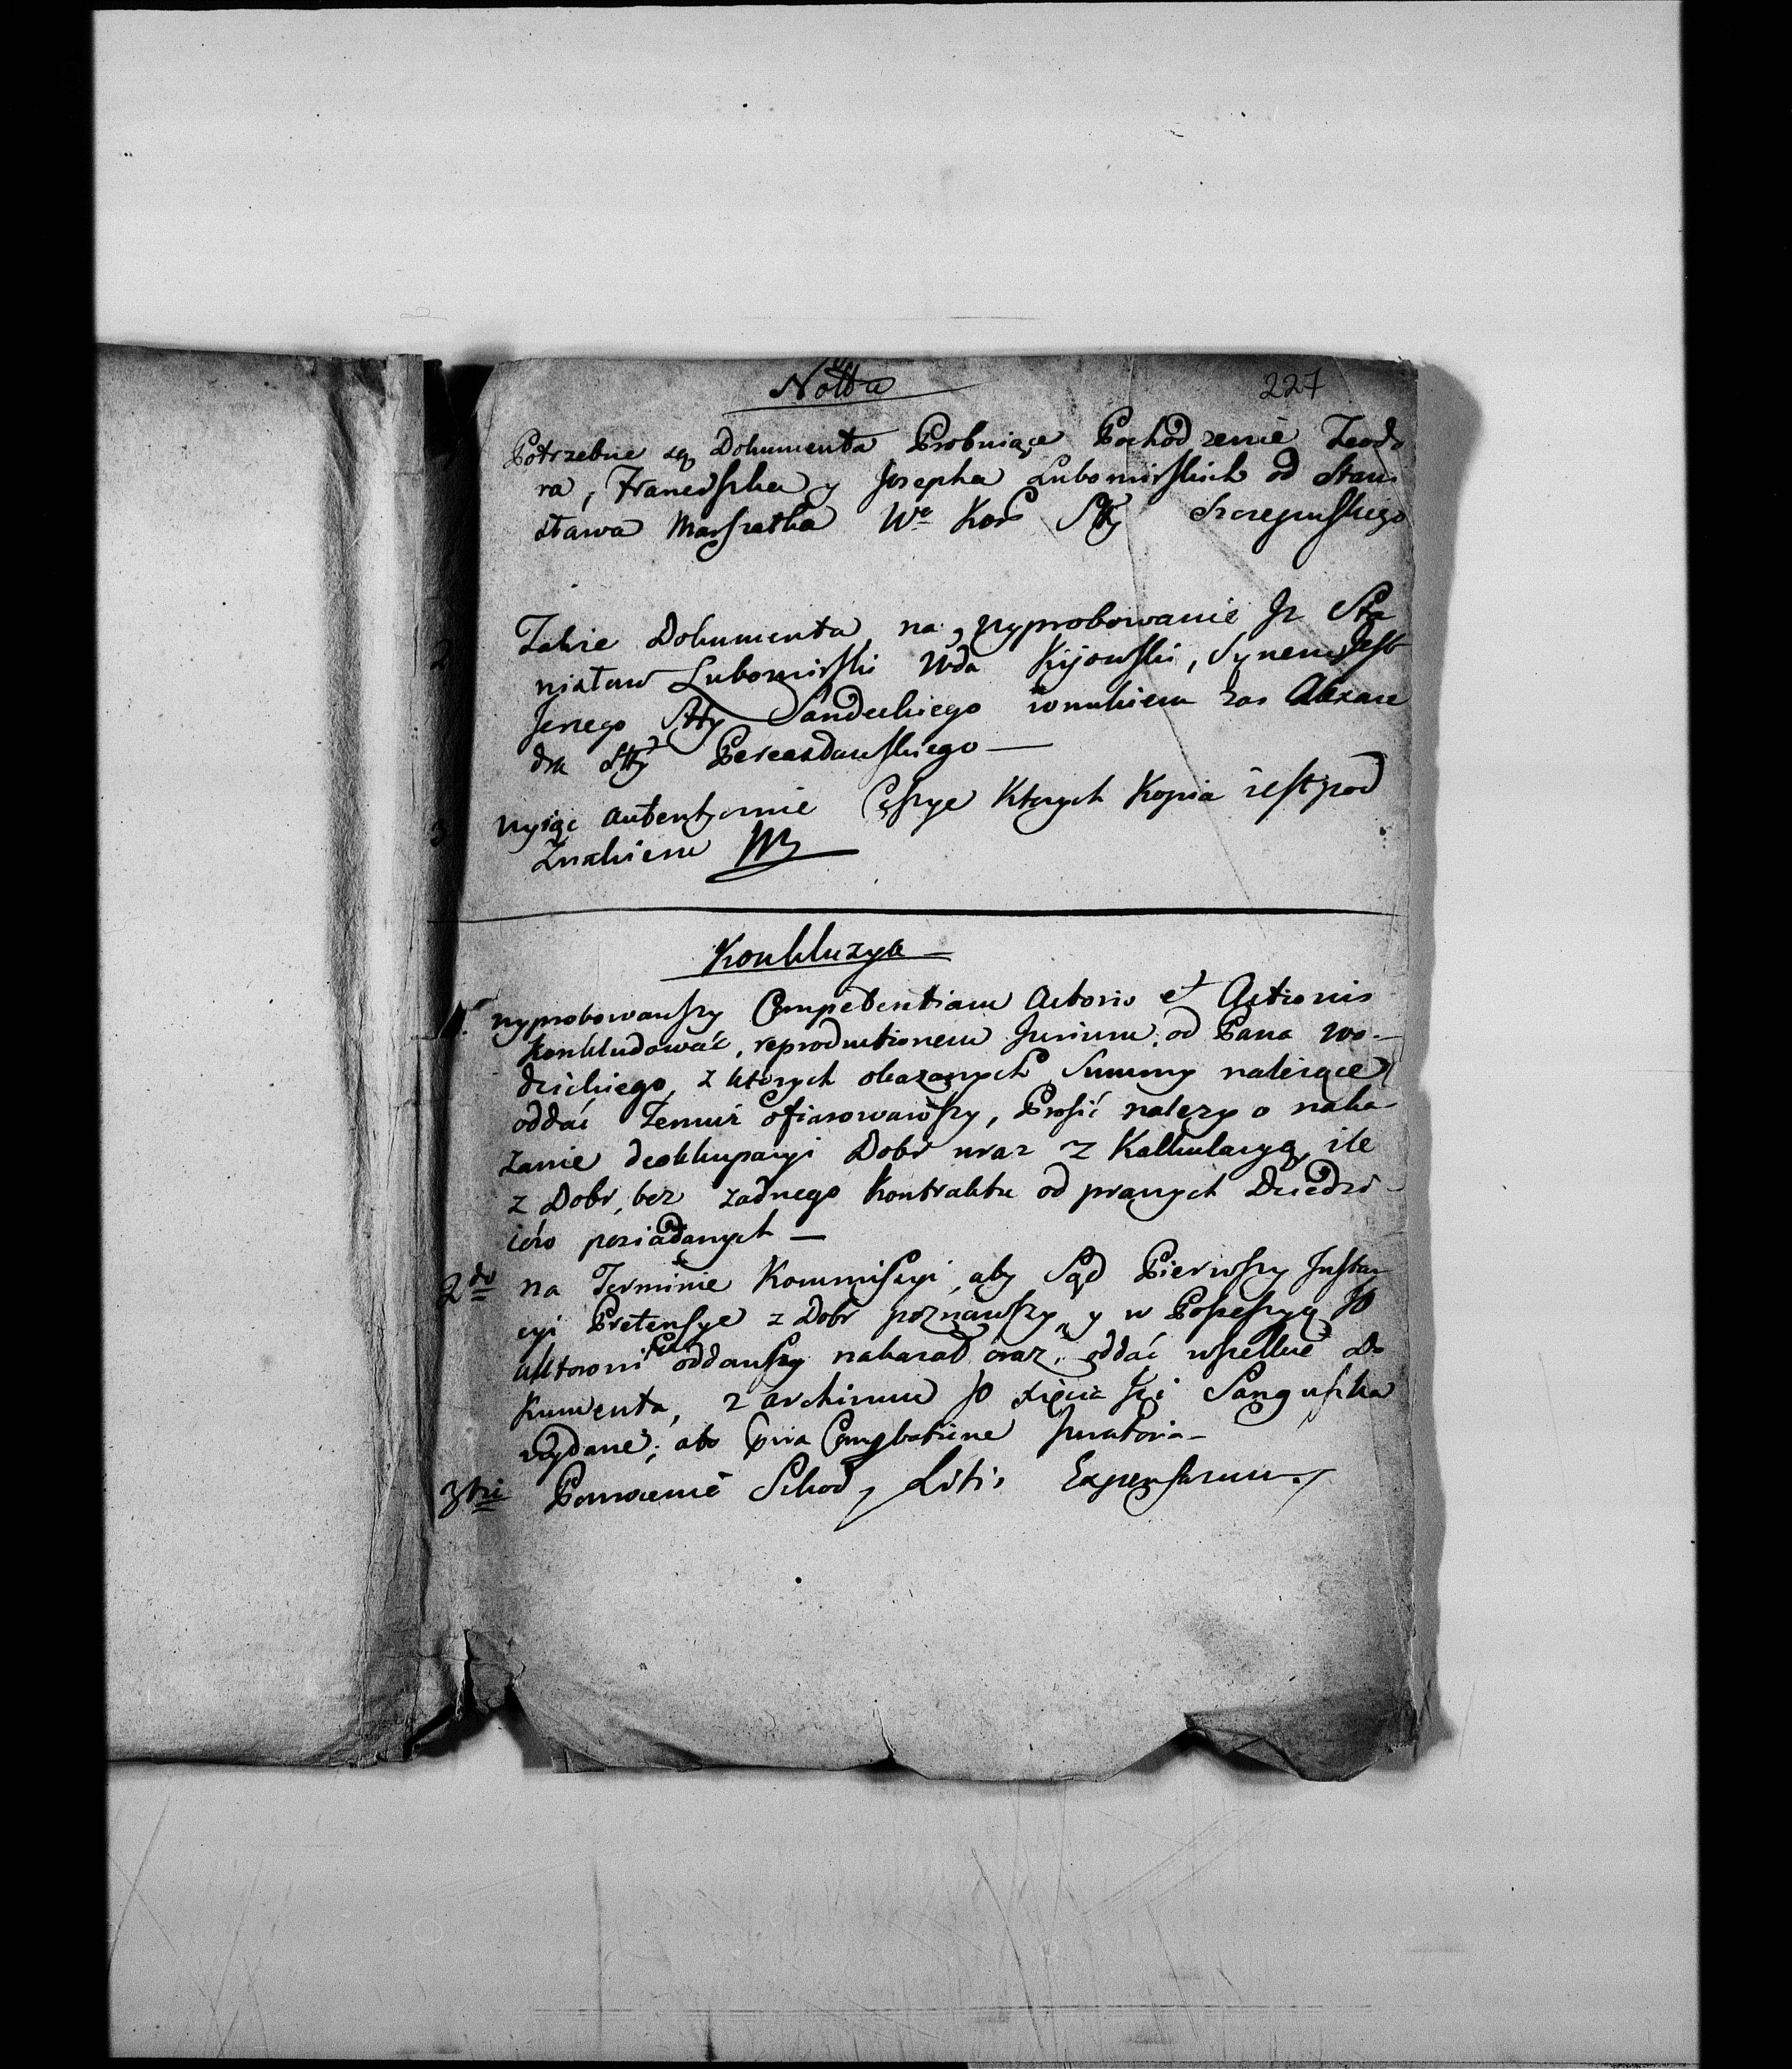 Notta
227
Potrzebne są Dokumenta Probuiące Pochodzenie Teodo
ra, Franciszka y Josepha Lubomirskich od Stani
sława Marszałka Wo Kor Stty
2 Takie Dokumenta na wyprobowanie Iż Sta
nisław Lubomirski Wda Kijowski, Synem Jest
Jerzego Stty Sandeckiego wnukiem zas Alexan
dra Stty Pereasławskiego —
3 wyiąc autentycznie Cessye Ktorych Kopia iest pod
Znakiem
Konkluzya —
1. wyprobowawszy Competentiam Actoris et Actionis
Konkludować, reproductionem Jurium od Pana Wo-
dzickiego, z ktorych okazanych Summy należące
oddać Temuż ofiarowawszy, Prosić należy o naka
zanie deokkupacyi Dobr wraz z Kalkulacyą, ile
z Dobr, bez żadnego Kontraktu od prawych Dziedzi-
ców posiadanych —
2do na Terminie Kommissyi, aby Sąd Pierwszy Instan
cyi Pretensye z Dobr poznawszy, y w Possessyą JO
Aktorowi oddawszy nakazał oraz oddać wszelkie Do
kumenta, z archiwum JO Xięcia Sanguszka
wydane,
3tio Powrocenie Szkod y Litis Expensarum.